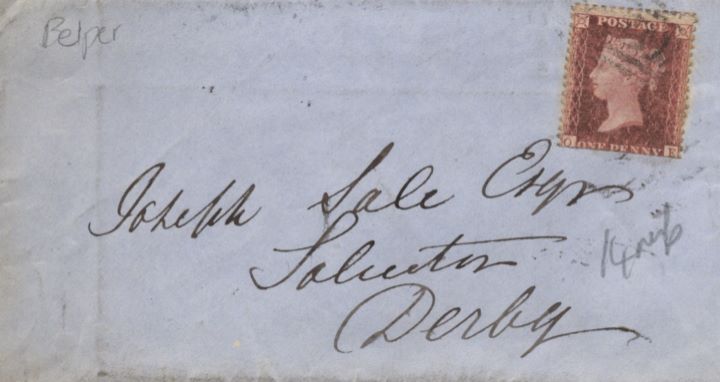 Belper
POSTAGE
O E
ONE PENNY
Joseph Sale Esqre
Solicitor
Derby